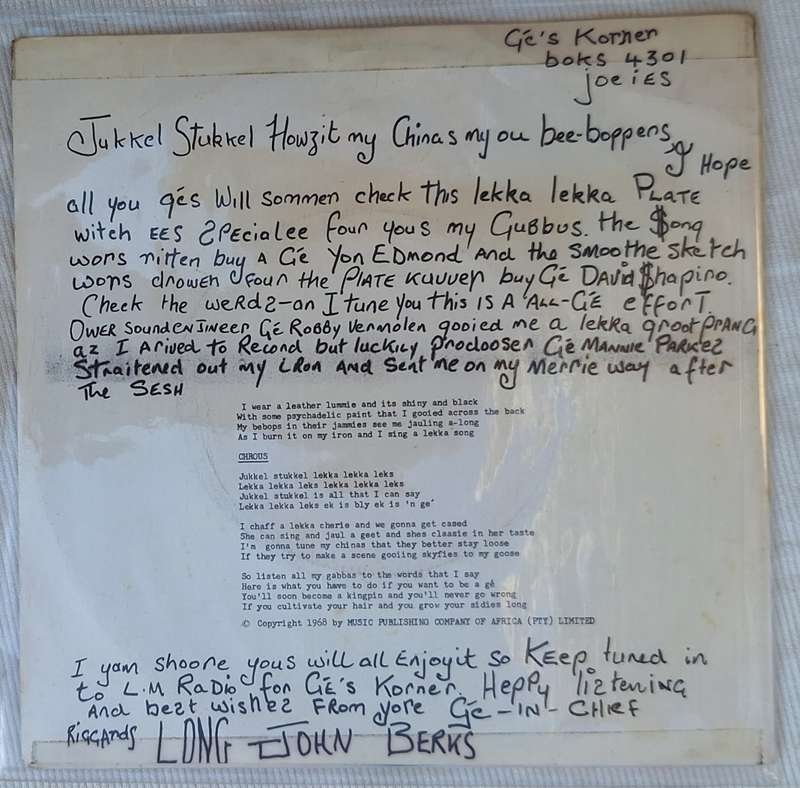 Gé's Korner
boks 4301
joeies
Jukkel Stukkel Howzit my Chinas my ou bee-boppens
I Hope
all you gés Will sommen check this lekka lekka PLATE
witch EES SPEcialee foun yous my Gubbus. the $ong
wors nitten buy A Gé Yon EDmond And the smoothe sketch
wors drowen foun the PlATE Kuvven buy Gé DAVid $hapino.
Check the weRdS-an I tune you this IS A ALL-GÉ effort.
OWER SoundenJineer Gé RObby Vermolen gooied me a lekka groot PRANG
az I Arived to Record but luckily proclooser Gé MANNIE PARKEz
Straitened out my LRon And Sent me on my Merrie way after
The SESH
I wear a leather lummie and its shiny and black
With some psychadelic paint that I gooied across the back
My bebops in their jammies see me jauling a-long
As I burn it on my iron and I sing a lekka song
CHROUS
Jukkel stukkel lekka lekka leks
Lekka lekka leks lekka lekka leks
Jukkel stukkel is all that I can say
Lekka lekka leks ek is bly ek is 'n ge'
I chaff a lekka cherie and we gonna get cased
She can sing and jaul a geet and shes claasie in her taste
I'n gonna tune my chinas that they better stay loose
If they try to make a scene gooiing skyfies to my goose
So listen all my gabbas to the words that I say
Here is what you have to do if you want to be a gé
You'll soon become a kingpin and you'll never go wrong
If you cultivate your hair and you grow your sidies long
© Copyright 1968 by MUSIC PUBLISHING COMPANY OF AFRICA (PTY) LIMITED
I yam shoone yous will all Enjoyit so KEEP tuned in
to L.M RADIO for GÉ'S Korner. Heppy liztening
And bezt wishez FROM yore GÉ-IN-CHIEF
RiGGARDS LONG JOHN BERKS